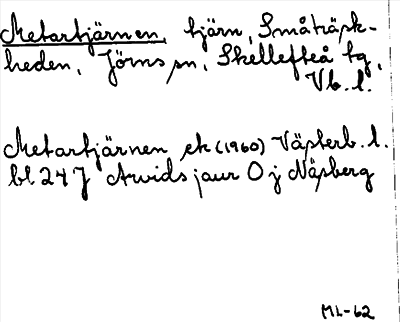 Metartjärnen, tjärn, Småträsk-
heden, Jörns sn, Skellefteå tg,
Vb. l.
Metartjärnen ek (1960) Västerb. l.
bl 24 J Arvidsjaur O j Nåsberg
ML-62